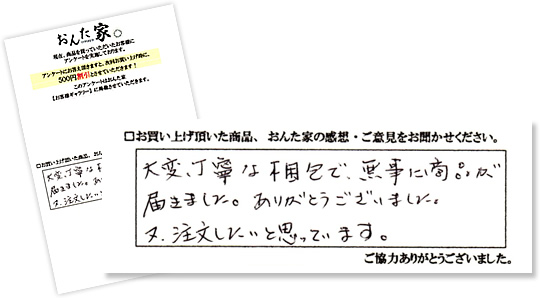 おんた家。
現在、商品を買っていただいたお客様に
アンケートを実施しております。
アンケートにお答え頂きますと、次回お買い上げ時に、
500円割引とさせていただきます!
このアンケートはおんた家
【お客様ギャラリー】に掲載させていただきます。
□お買い上げ頂いた商品、おん
大変、丁寧な梱
届きました。あり
又、注文したい
□お買い上げ頂いた商品、おんた家の感想・ご意見をお聞かせください。
大変、丁寧な梱包で、無事に商品が
届きました。ありがとうございました。
又、注文したいと思っています。
ご協力ありがとうございました。